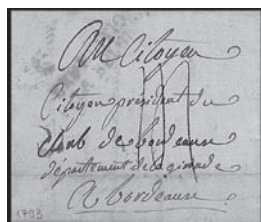 Au Citoyen
Citoyen président du
Club de bordeaux
département de la gironde
A bordeaux
1793